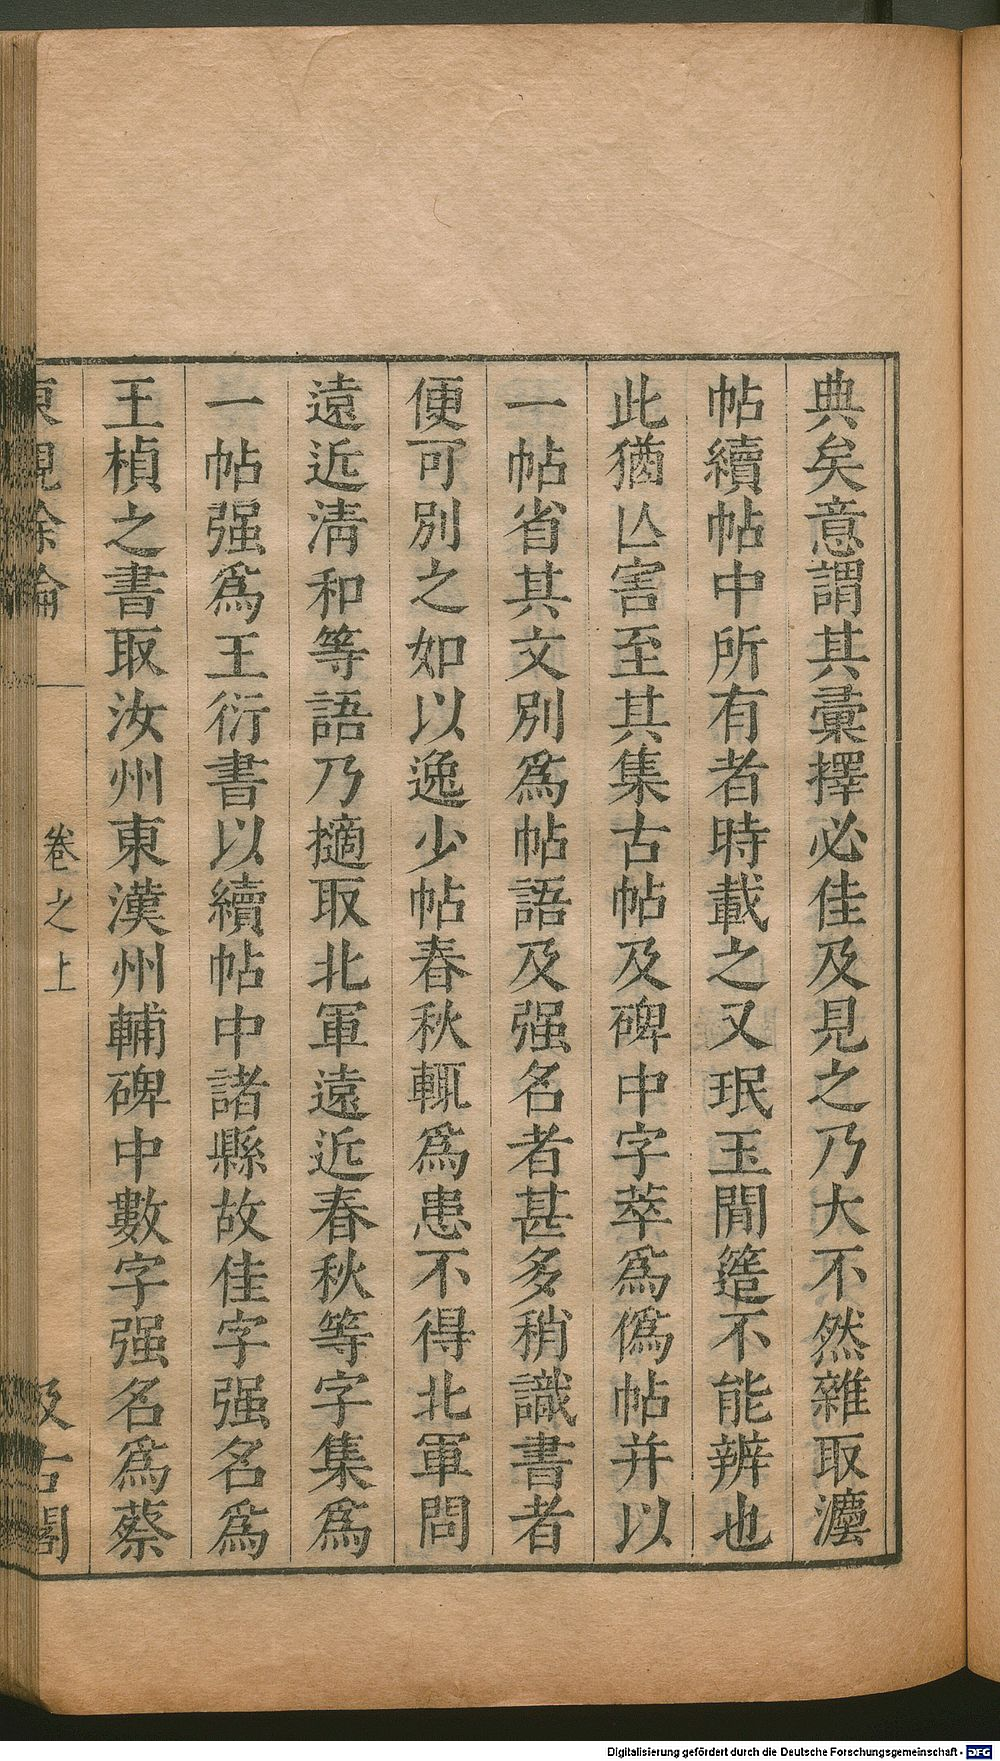 典矣意謂其彙擇必佳及見之乃大不然雜取灋
帖續帖中所有者時載之又珉玉閒簉不能辨也
此猶亾害至其集古帖及碑中字萃爲僞帖并以
一帖省其文別爲帖語及强名者甚多稍識書者
便可別之如以逸少帖春秋輒爲患不得北軍問
遠近淸和等語乃擿取北軍遠近春秋等字集爲
一帖强爲王衍書以續帖中諸縣故佳字强名爲
王楨之書取汝州東漢州輔碑中數字强名爲蔡
東觀餘論
卷之上
汲古閣
Digitalisierung gefördert durch die Deutsche Forschungsgemeinschaft - DFG